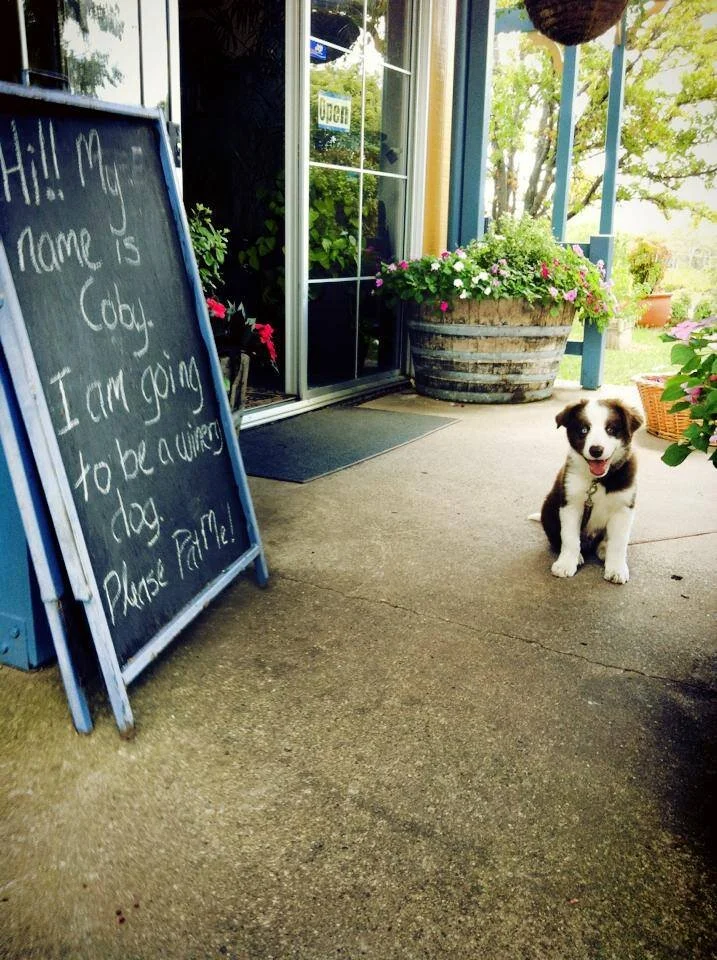 Hi!! My
name is
Coby.
I am going
to be a winery
dog.
Please Pat Me!
open